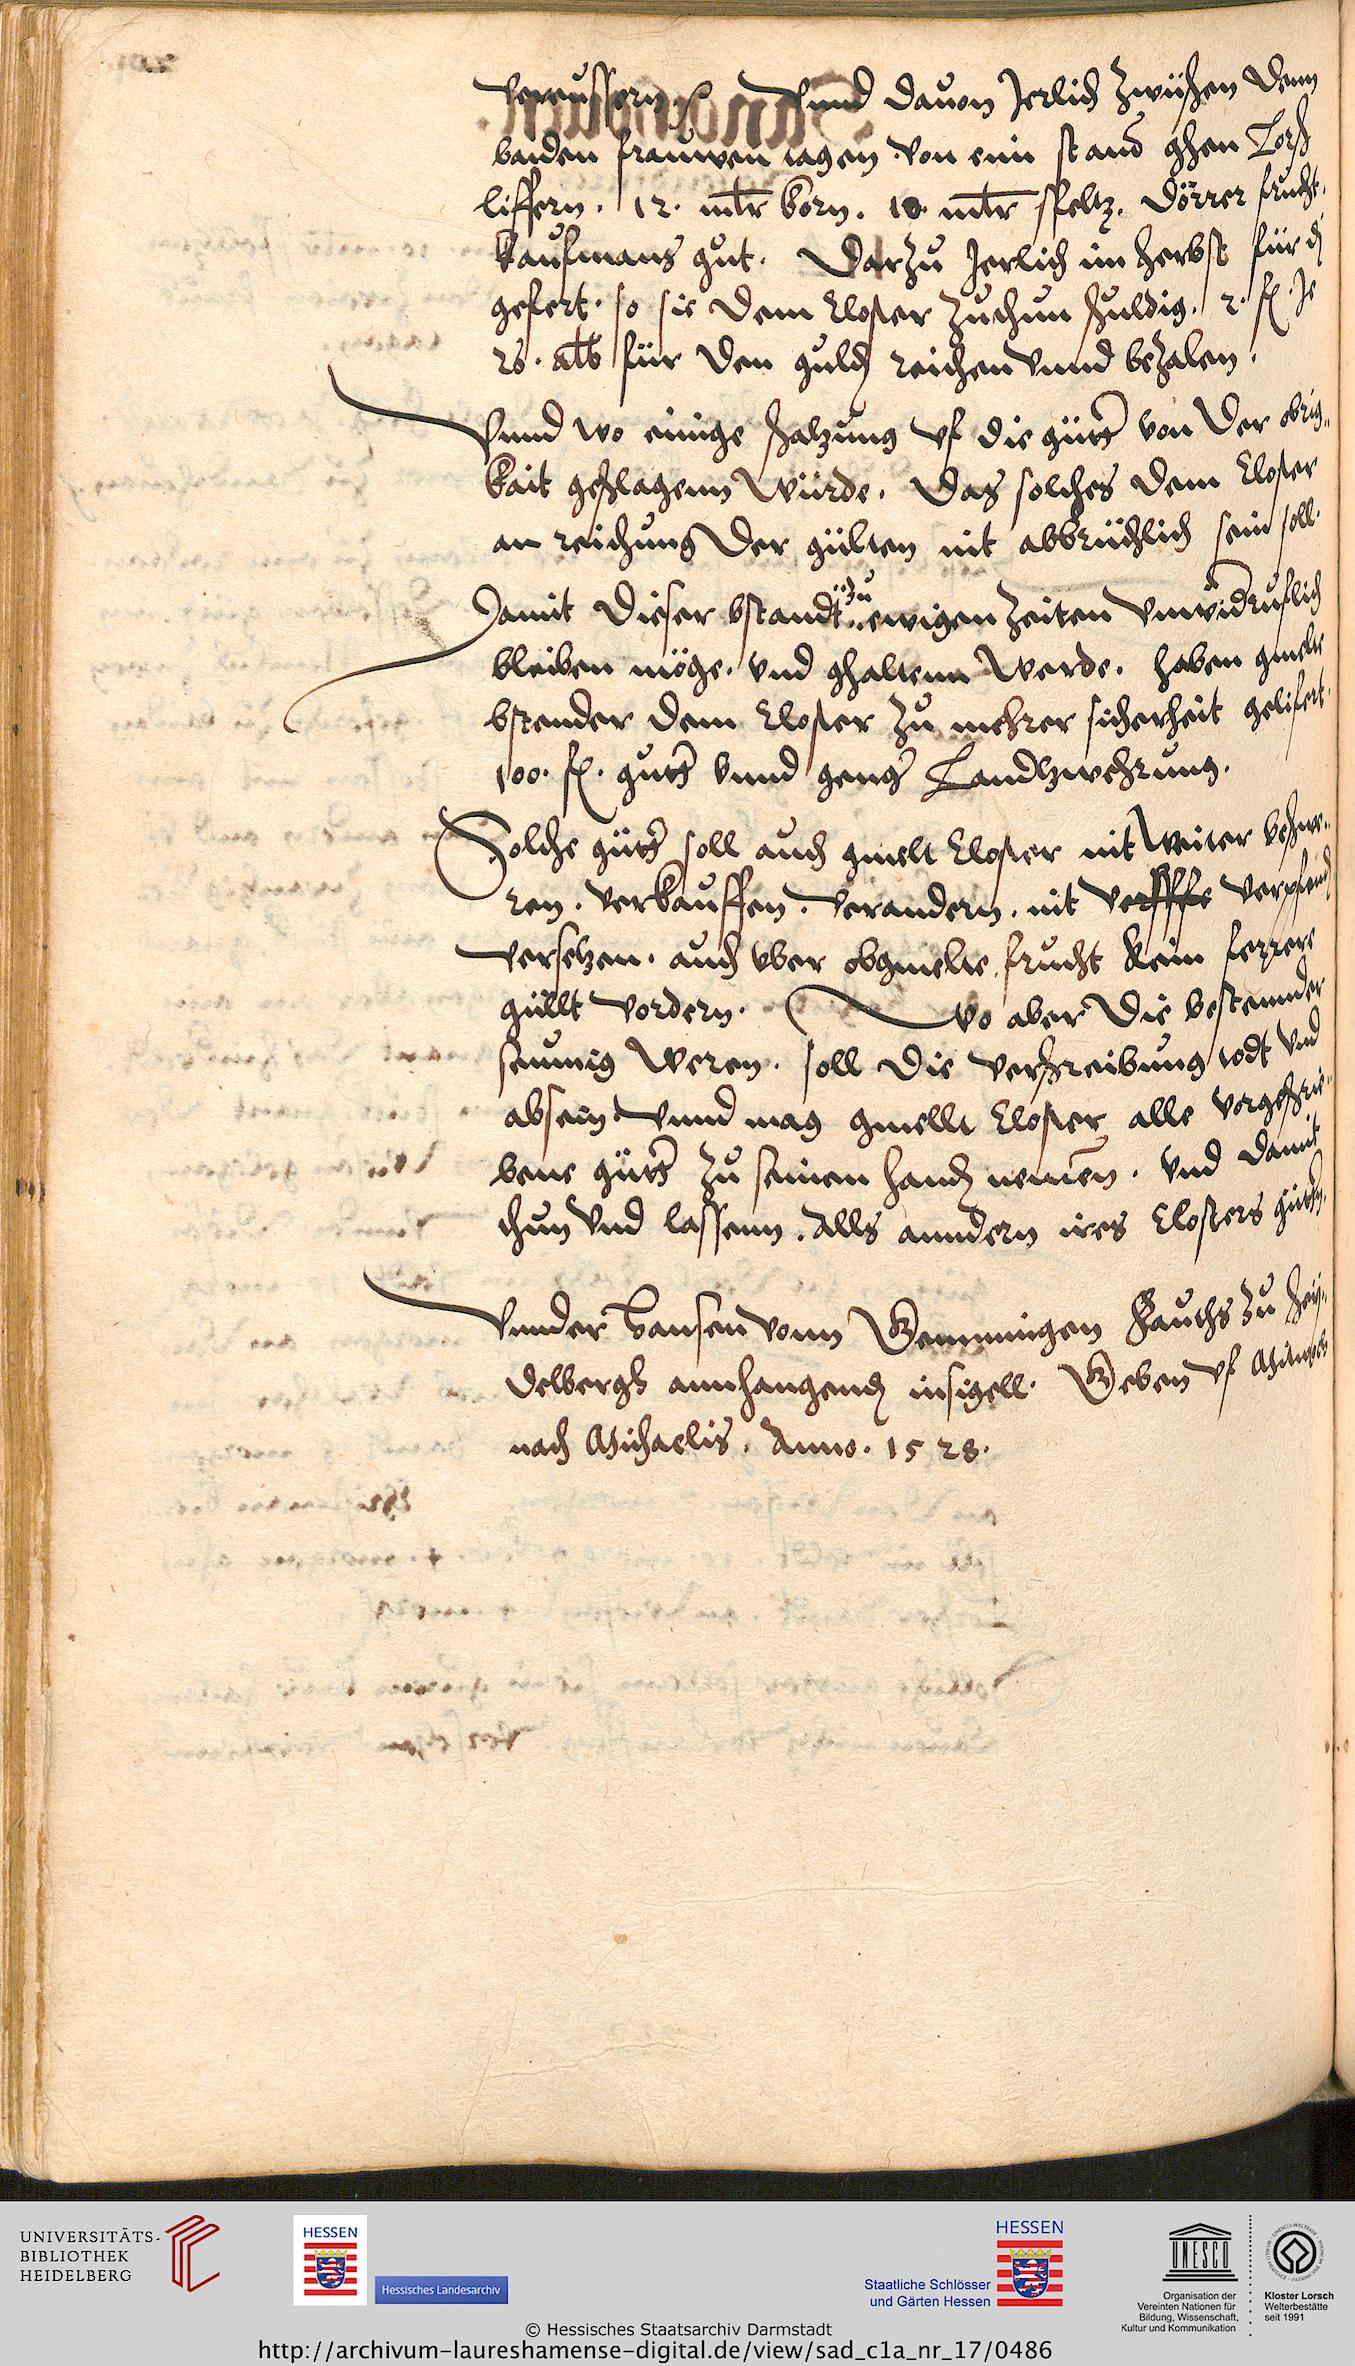 vereussern ꝛc Vnnd dauon Jerlich zwüschen denn
baiden frauwen tagen von ein stand ghen Lorsch
liffern . 12 . mltr korn . 10 mltr speltz . dörrer frucht .
kaufmans gut . Darzu Jerlich im herbst für d
gefert . so sie dem Closter zuthun schuldig . 2 . fl . Je
26 . alb für den guld reichen Vnnd bezalen .
Vnnd wo einige schatzung vf die gütter von der obrig„
kait geschlagenn würde . Das solches dem Closter
an reichung der gülten nit abbrüchlich sein soll .
Damit dieser bstandt zu ewigen Zeiten Vnwidruflich
bleiben möge . vnd ghaltenn werde . haben gmelte
bstender dem Closter zu mehrer sicherheit gelifert .
100 . fl . gutter vnnd genger Landtzwehrung .
Solche gütter soll auch gmelt Closter nit weiter beschwe„
ren . verkauffen . verandern . nit verpfend
versetzen . auch vber obgmelte frucht kein ferrere
güllt vordern . Wo aber die bestennder
seumig weren . soll die verschreibung todt vnd
absein Vnnd mag gmellt Closter alle vorgeschrie„
bene gütter zu seinen hand nemen . vnd damit
thun Vnd lassenn . Alls anndern ires Closters gütern .
Vnnder Hansen vonn Gemmingen Fauths zu Hey„
delbergk annhangend insigell . Geben vf Mitwoch
nach Michaelis . Anno . 1528 .
UNIVERSITÄTS-
BIBLIOTHEK
HEIDELBERG
HESSEN
Hessisches Landesarchiv
HESSEN
Staatliche Schlösser
und Gärten Hessen
UNESCO
Organisation der
Vereinten Nationen für
Bildung, Wissenschaft,
Kultur und Kommunikation
Kloster Lorsch
Welterbestätte
seit 1991
© Hessisches Staatsarchiv Darmstadt
http://archivum-laureshamense-digital.de/view/sad_c1a_nr_17/0486